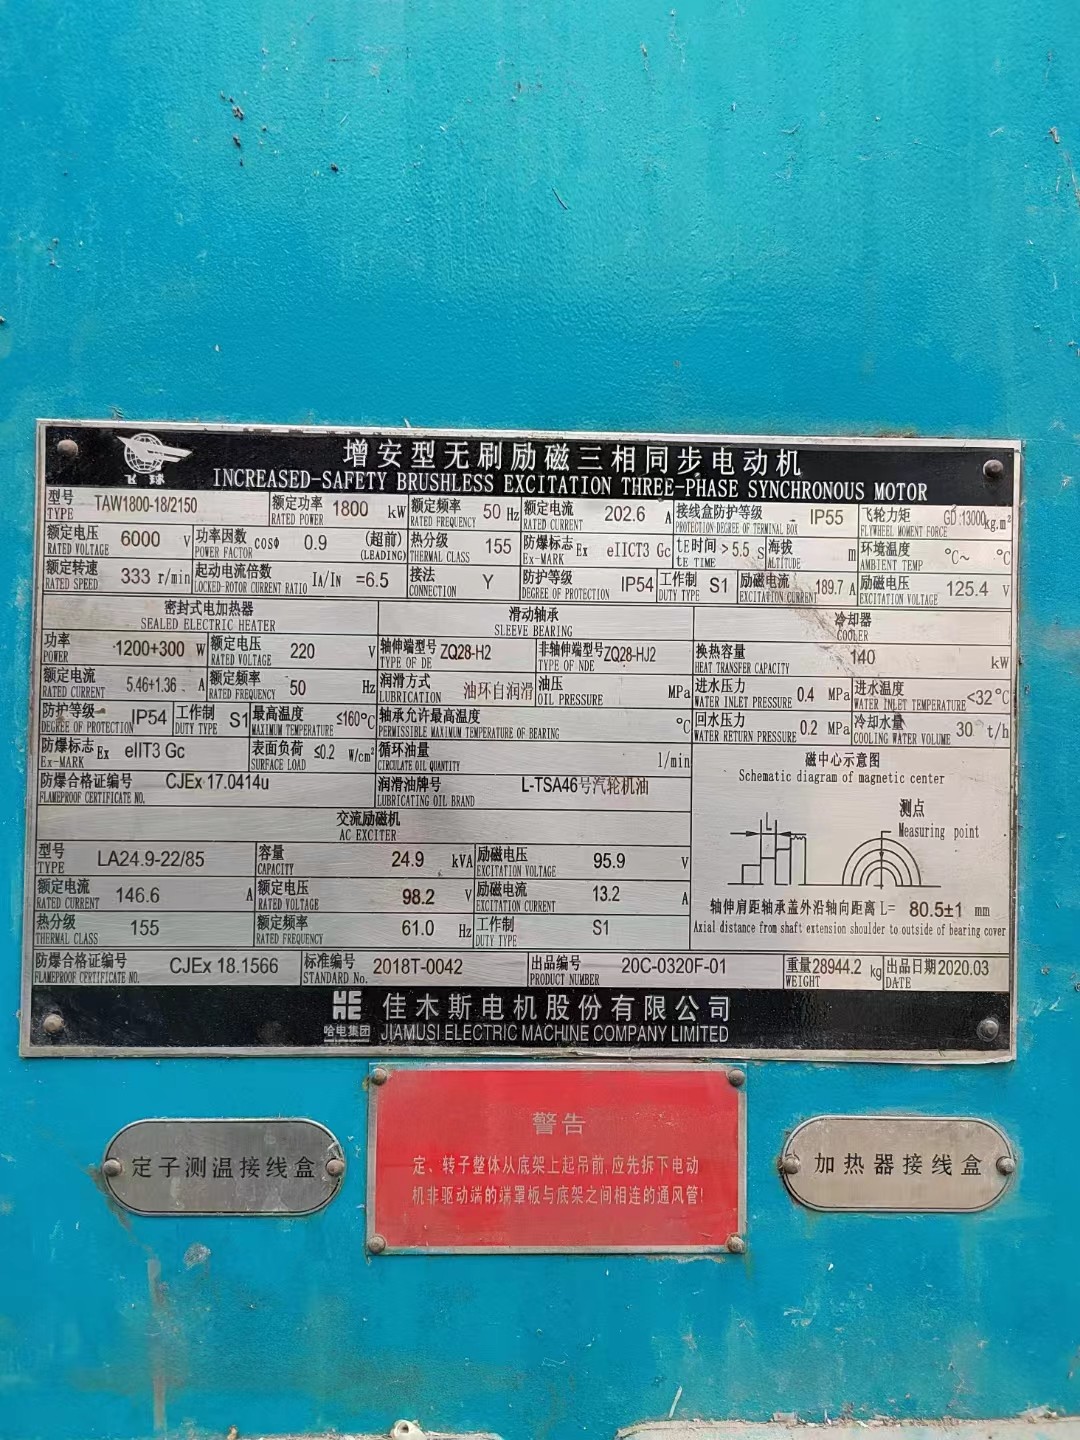 飞球
增安型无刷励磁三相同步电动机
INCREASED-SAFETY BRUSHLESS EXCITATION THREE-PHASE SYNCHRONOUS MOTOR
型号 TYPE TAW1800-18/2150 额定功率 RATED POWER 1800 kW 额定频率 RATED FREQUENCY 50 Hz 额定电流 RATED CURRENT 202.6 A 接线盒防护等级 PROTECTION DEGREE OF TERMINAL BOX IP55 飞轮力矩 FLYWHEEL MOMENT FORCE GD:13000 kg.m²
额定电压 RATED VOLTAGE 6000 V 功率因数 POWER FACTOR cosΦ 0.9 (超前) (LEADING) 热分级 THERMAL CLASS 155 防爆标志 Ex-MARK Ex eIICT3 Gc tE时间 tE TIME >5.5 S 海拔 ALTITUDE m 环境温度 AMBIENT TEMP °C~ °C
额定转速 RATED SPEED 333 r/min 起动电流倍数 LOCKED-ROTOR CURRENT RATIO IA/IN =6.5 接法 CONNECTION Y 防护等级 DEGREE OF PROTECTION IP54 工作制 DUTY TYPE S1 励磁电流 EXCITATION CURRENT 189.7 A 励磁电压 EXCITATION VOLTAGE 125.4 V
密封式电加热器 SEALED ELECTRIC HEATER 滑动轴承 SLEEVE BEARING 冷却器 COOLER
功率 POWER 1200+300 W 额定电压 RATED VOLTAGE 220 V 轴伸端型号 TYPE OF DE ZQ28-H2 非轴伸端型号 TYPE OF NDE ZQ28-HJ2 换热容量 HEAT TRANSFER CAPACITY 140 kW
额定电流 RATED CURRENT 5.46+1.36 A 额定频率 RATED FREQUENCY 50 Hz 润滑方式 LUBRICATION 油环自润滑 油压 OIL PRESSURE MPa 进水压力 WATER INLET PRESSURE 0.4 MPa 进水温度 WATER INLET TEMPERATURE <32 °C
防护等级 DEGREE OF PROTECTION IP54 工作制 DUTY TYPE S1 最高温度 MAXIMUM TEMPERATURE ≤160°C 轴承允许最高温度 PERMISSIBLE MAXIMUM TEMPERATURE OF BEARING °C 回水压力 WATER RETURN PRESSURE 0.2 MPa 冷却水量 COOLING WATER VOLUME 30 t/h
防爆标志 Ex-MARK Ex eIIT3 Gc 表面负荷 SURFACE LOAD ≤0.2 W/cm² 循环油量 CIRCULATE OIL QUANTITY l/min 磁中心示意图
Schematic diagram of magnetic center
防爆合格证编号 FLAMEPROOF CERTIFICATE NO. CJEx 17.0414u 润滑油牌号 LUBRICATING OIL BRAND L-TSA46号汽轮机油
测点
Measuring point
L
交流励磁机
AC EXCITER
型号 TYPE LA24.9-22/85 容量 CAPACITY 24.9 kVA 励磁电压 EXCITATION VOLTAGE 95.9 V
额定电流 RATED CURRENT 146.6 A 额定电压 RATED VOLTAGE 98.2 V 励磁电流 EXCITATION CURRENT 13.2 A
热分级 THERMAL CLASS 155 额定频率 RATED FREQUENCY 61.0 Hz 工作制 DUTY TYPE S1
轴伸肩距轴承盖外沿轴向距离 L= 80.5±1 mm
Axial distance from shaft extension shoulder to outside of bearing cover
防爆合格证编号 FLAMEPROOF CERTIFICATE NO. CJEx 18.1566 标准编号 STANDARD No. 2018T-0042 出品编号 PRODUCT NUMBER 20C-0320F-01 重量 WEIGHT 28944.2 kg 出品日期 DATE 2020.03
哈电集团
佳木斯电机股份有限公司
JIAMUSI ELECTRIC MACHINE COMPANY LIMITED
警告
定、转子整体从底架上起吊前,应先拆下电动
机非驱动端的端罩板与底架之间相连的通风管!
定子测温接线盒
加热器接线盒